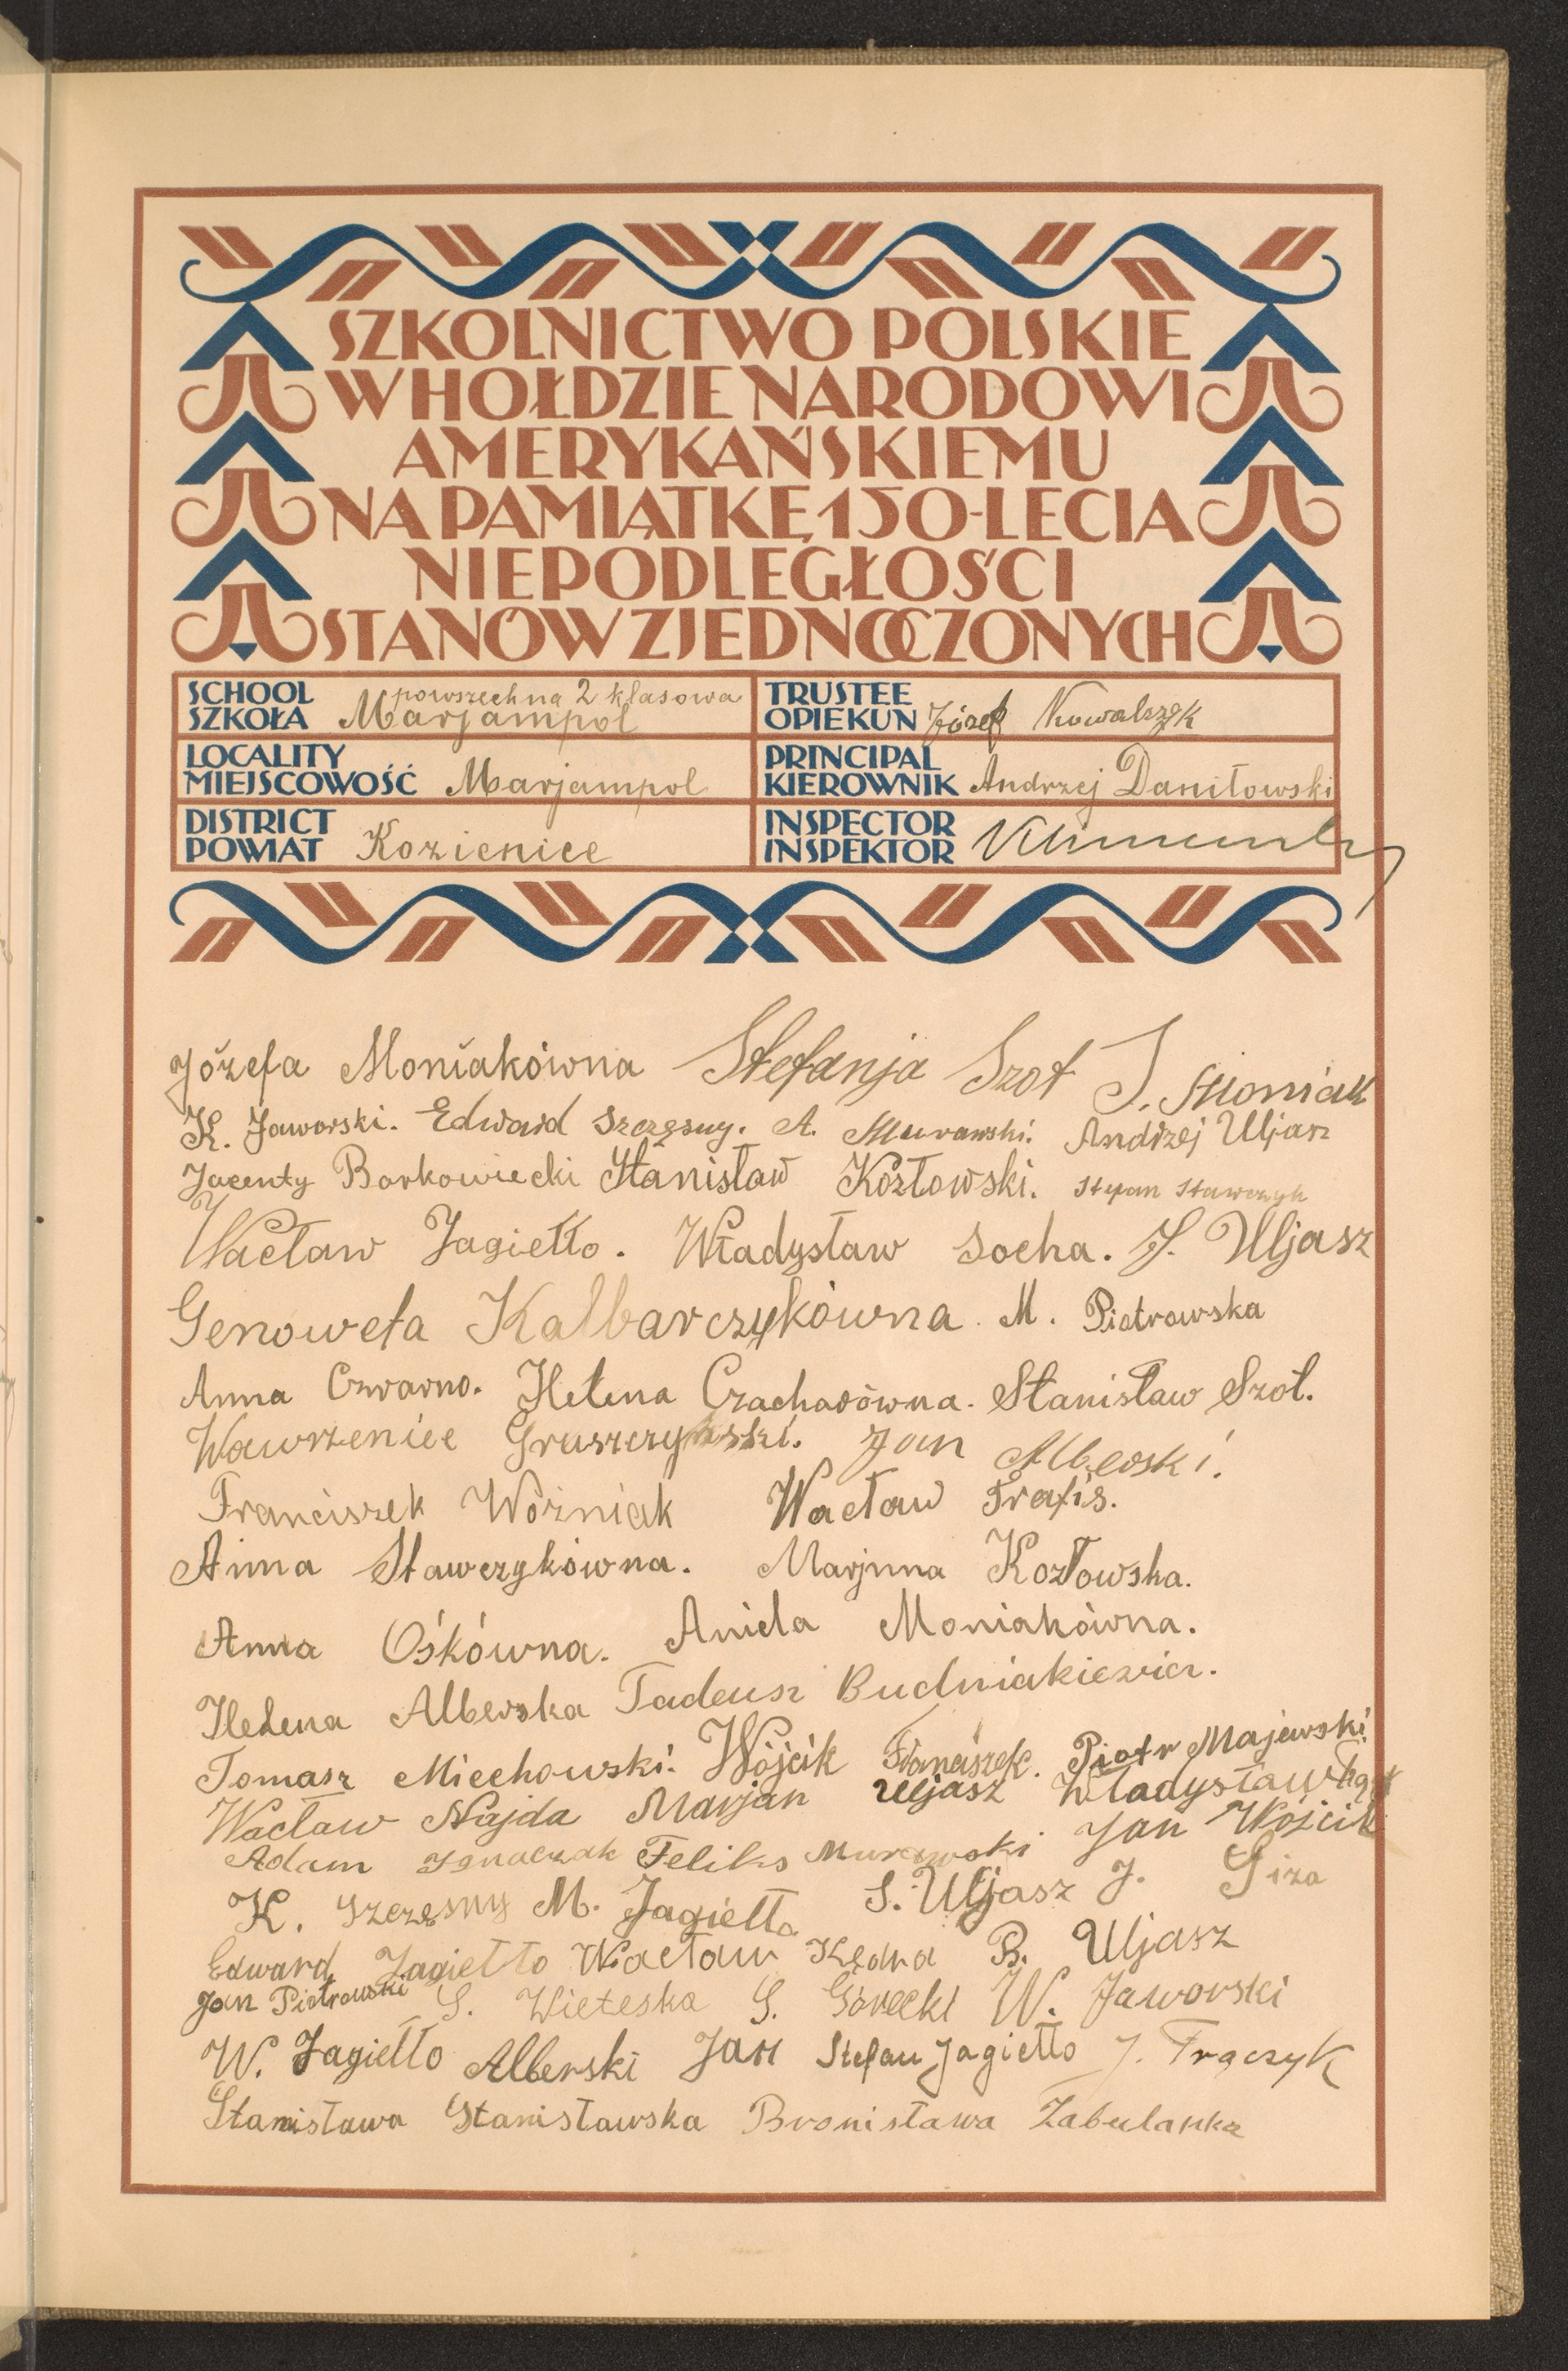 SZKOLNICTWO POLSKIE
W HOŁDZIE NARODOWI
AMERYKAŃSKIEMU
NA PAMIĄTKĘ 150-LECIA
NIEPODLEGŁOŚCI
STANÓW ZJEDNOCZONYCH
SCHOOL
SZKOŁA
powszechna 2 klasowa
Marjampol
TRUSTEE
OPIEKUN Józef Kowalczyk
LOCALITY
MIEJSCOWOŚĆ Marjampol
PRINCIPAL
KIEROWNIK Andrzej Daniłowski
DISTRICT
POWIAT Kozienice
INSPECTOR
INSPEKTOR
Józefa Moniakówna Stefanja Szot J. Moniak
K. Jaworski. Edward Szczęsny. A. Murawski. Andrzej Uljasz
Jacenty Borkowiecki Stanisław Kozłowski. Stefan Stawczyk
Wacław Jagiełło. Władysław Socha. J. Uljasz
Genowefa Kalbarczykówna. M. Piotrowska
Anna Czwarno. Helena Czacharówna. Stanisław Szot.
Wawrzeniec Gruszczyński. Jan Alberski.
Franciszek Woźniak Wacław Trafis.
Anna Stawczykówna. Marjnna Kozłowska.
Anna Ośkówna. Aniela Moniakówna.
Helena Alberska Tadeusz Budniakiewicz.
Tomasz Miechowski. Wójcik Franciszek. Piotr Majewski
Wacław Najda Marjan Uljasz Władysław
Adam Ignaczak Feliks Murawski Jan Wójcik
K. Szczęsny M. Jagiełło S. Uljasz J. Giza
Edward Jagiełło Wacław Kędra B. Uljasz
Jan Piotrowski S. Wieteska S. Górecki W. Jaworski
W. Jagiełło Alberski Jan Stefan Jagiełło J. Trączyk
Stanisława Stanisławska Bronisława Zabulanka